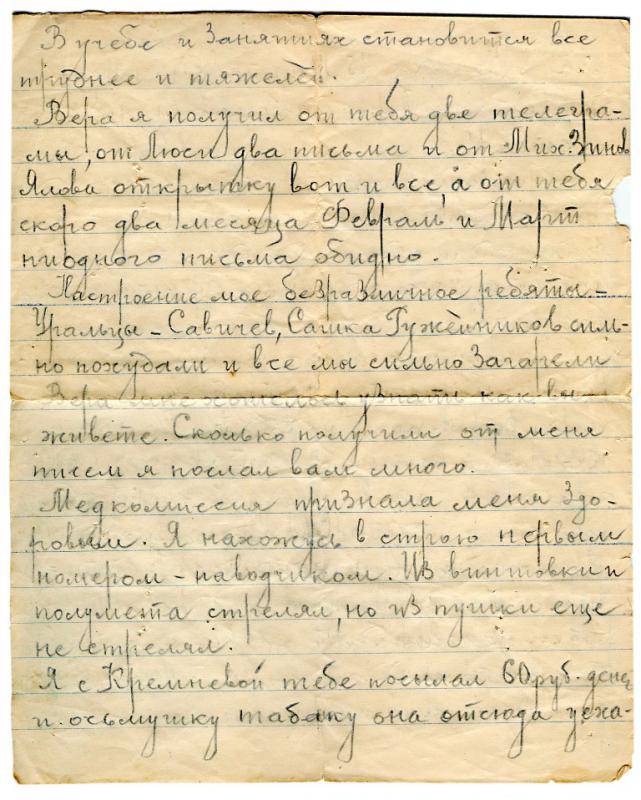 В учебе и занятиях становится все
труднее и тяжелей.
Вера я получил от тебя две телегра-
мы, от Люси два письма и от Мих. Зинов
Ялова открытку вот и все, а от тебя
скоро два месяца Февраль и Март
ниодного письма обидно.
Настроение мое безразличное ребяты-
Уральцы - Савичев, Сашка Гужейников силь-
но похудали и все мы сильно загарели
Вера мне хотелось узнать как вы
живете. Сколько получили от меня
писем я послал вам много.
Медкомиссия признала меня здо-
ровым. Я нахожусь в строю первым
номером - наводчиком. Из винтовки и
пулумета стрелял, но из пушки еще
не стрелял.
Я с Кремневой тебе посылал 60 руб. денег
и осьмушку табаку она отсюда уеха-